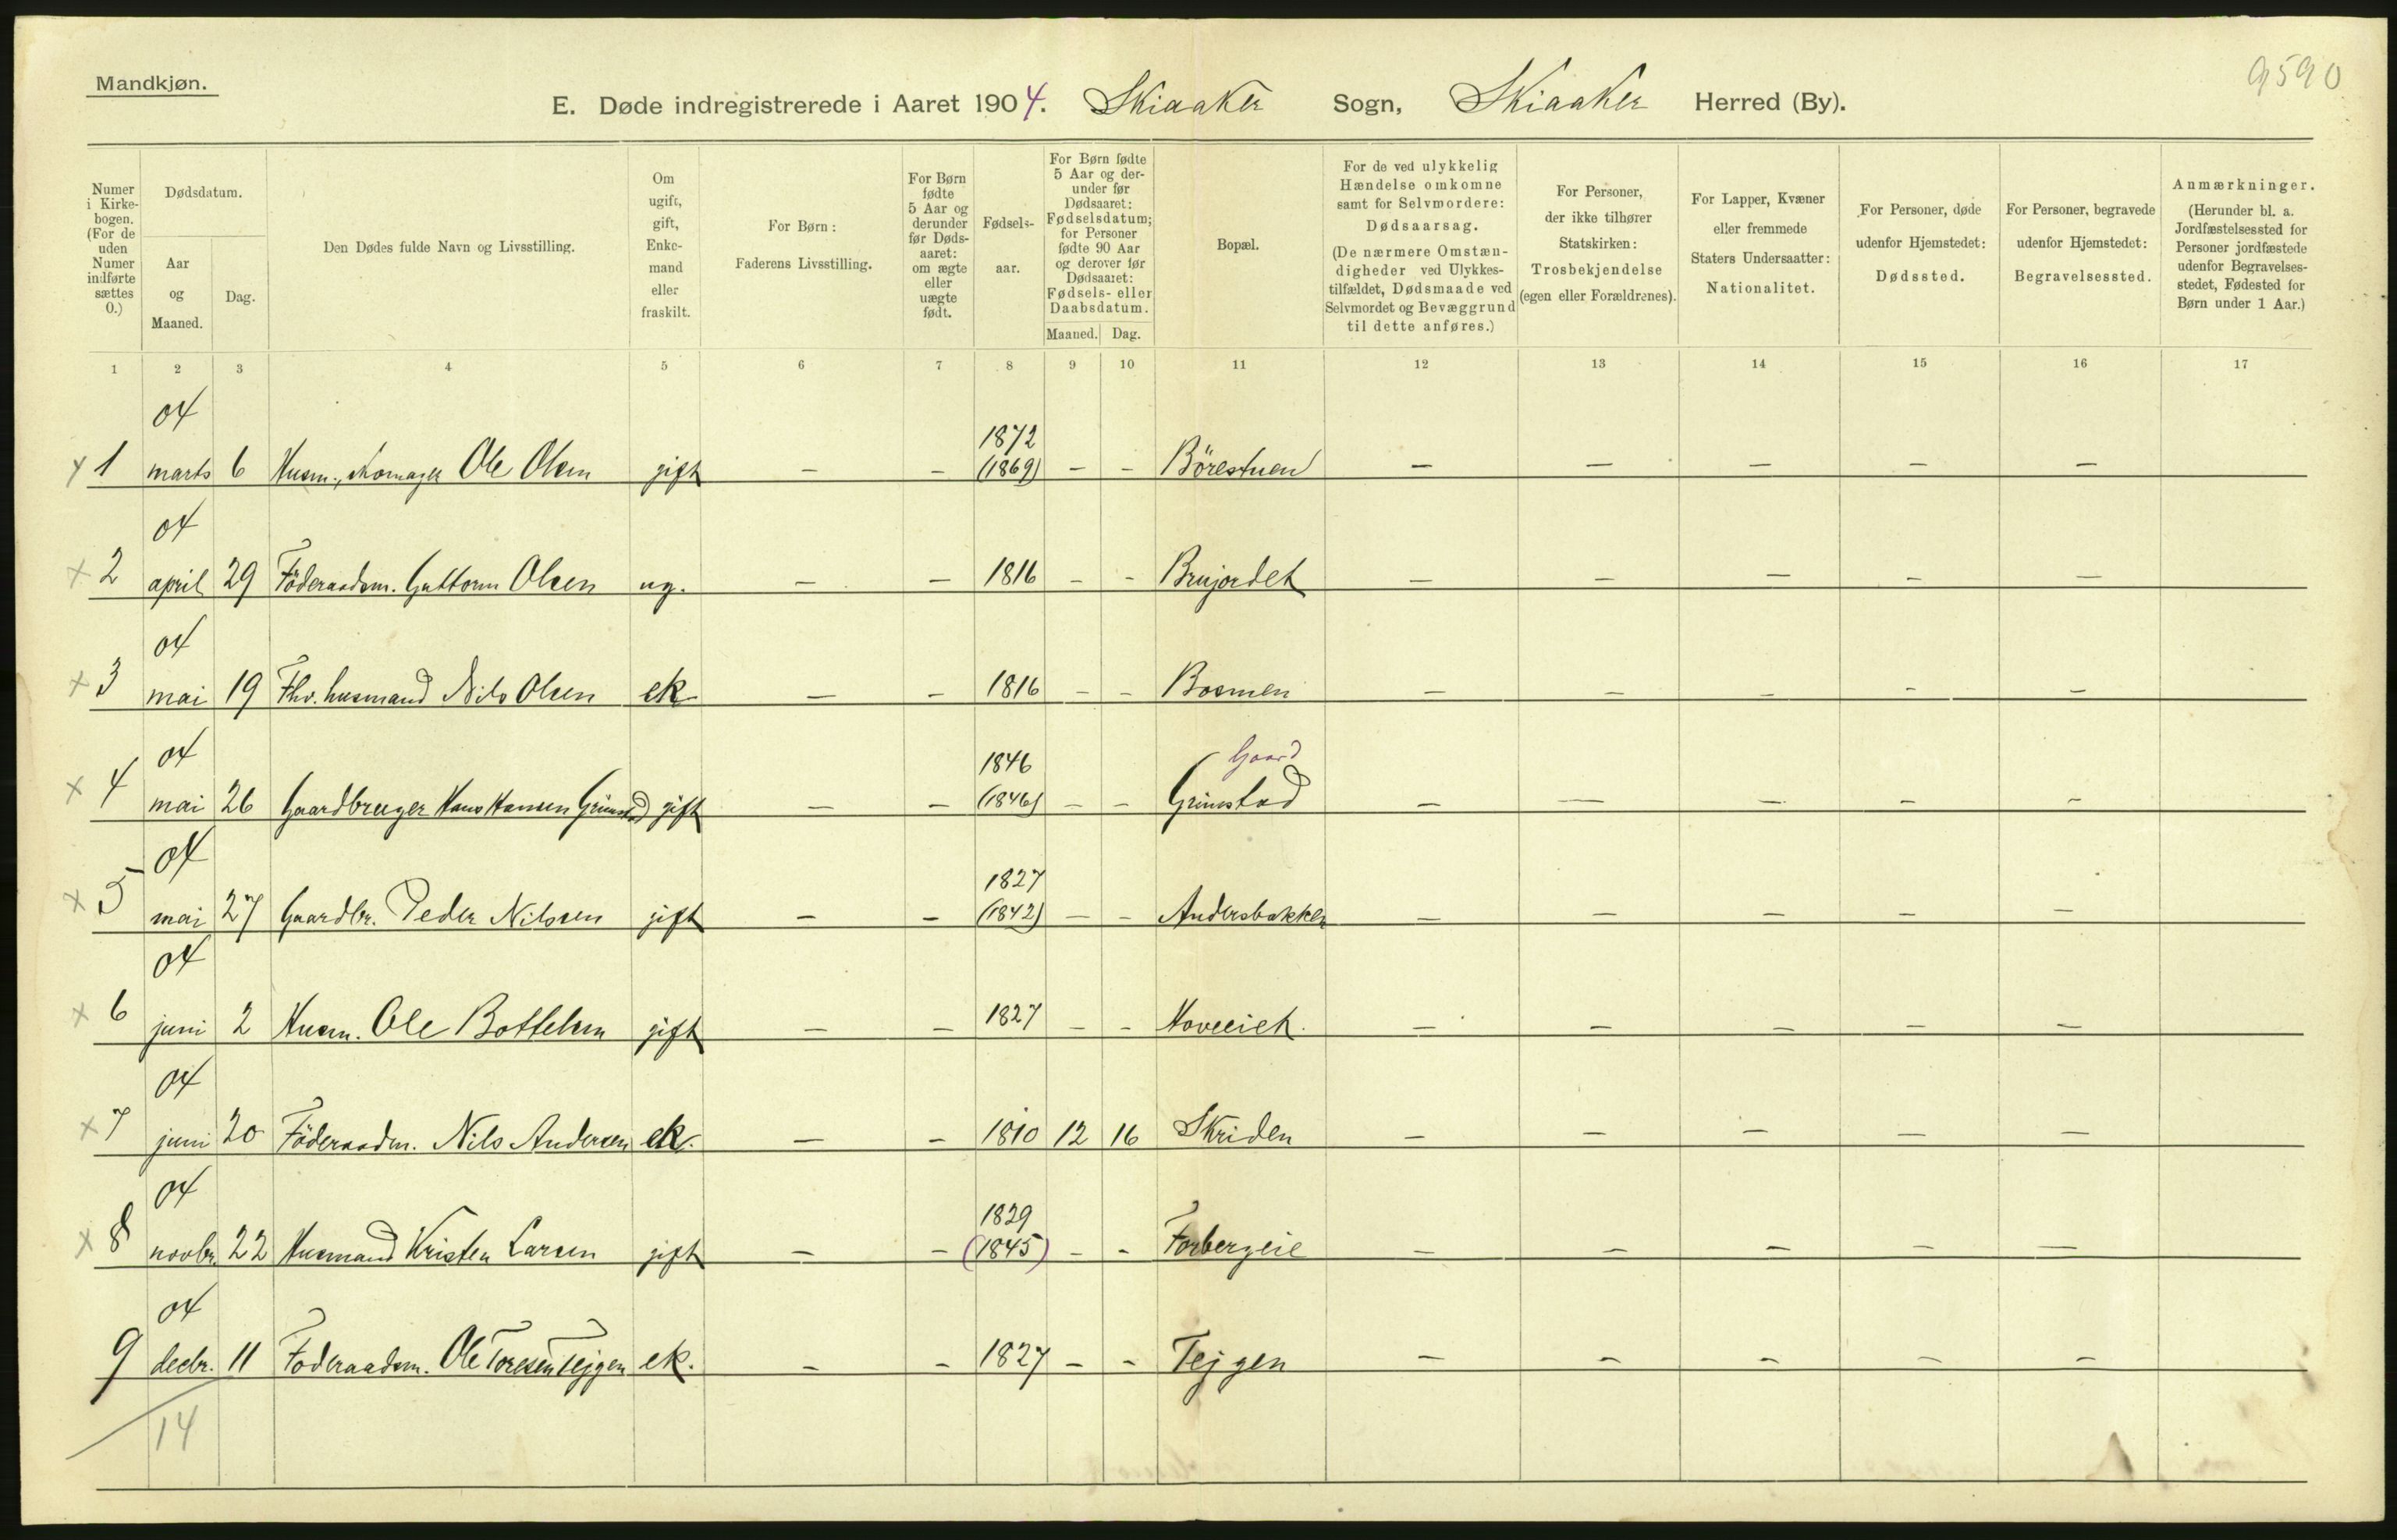 9590
Mandkjøn.
E. Døde indregistrerede i Aaret 1904. Skiaaker Sogn, Skiaaker Herred (By).
Numer i Kirkebogen. (For de uden Numer indførte sættes 0.)
Dødsdatum.
Aar og Maaned.
Dag.
Den Dødes fulde Navn og Livsstilling.
Om ugift, gift, Enkemand eller fraskilt.
For Børn: Faderens Livsstilling.
For Børn fødte 5 Aar og derunder før Dødsaaret: om ægte eller uægte født.
Fødselsaar.
For Børn fødte 5 Aar og derunder før Dødsaaret: Fødselsdatum; for Personer fødte 90 Aar og derover før Dødsaaret: Fødsels- eller Daabsdatum.
Maaned. Dag.
Bopæl.
For de ved ulykkelig Hændelse omkomne samt for Selvmordere: Dødsaarsag. (De nærmere Omstændigheder ved Ulykkestilfældet, Dødsmaade ved Selvmordet og Bevæggrund til dette anføres.)
For Personer, der ikke tilhører Statskirken: Trosbekjendelse (egen eller Forældrenes).
For Lapper, Kvæner eller fremmede Staters Undersaatter: Nationalitet.
For Personer, døde udenfor Hjemstedet: Dødssted.
For Personer, begravede udenfor Hjemstedet: Begravelsessted.
Anmærkninger. (Herunder bl. a. Jordfæstelsessted for Personer jordfæstede udenfor Begravelsesstedet, Fødested for Børn under 1 Aar.)
1 2 3 4 5 6 7 8 9 10 11 12 13 14 15 16 17
04
1872
1 marts 6 Husm., Ole Olsen gift – – (1869) – – Börestuen – – – – –
04
× 2 april 29 Föderaadsm. Guttorm Olsen ug. – – 1816 – – Brujordet – – – – –
04
× 3 mai 19 Fhv. husmand Nils Olsen ek – – 1816 – – Bosmen – – – – –
04
1846 Gaard
× 4 mai 26 Gaardbruger Hans Hansen Grimstad gift – – (1846) – – Grimstad – – – – –
04
1827
× 5 mai 27 Gaardbr. Peder Nilssen gift – – (1842) – – Andersbakken – – – – –
04
× 6 juni 2 Husm. Ole gift – – 1827 – – – – – – –
04
× 7 juni 20 Föderaadm. Nils Andersen ek. – – 1810 12 16 Skriden – – – – –
04
1829
× 8 novbr. 22 Husmand Kristen Larsen gift – – (1845) – – Forbergeie – – – – –
04
9 decbr. 11 Föderaadsm. Ole Toresen Tejgen ek. – – 1827 – – Tejgen – – – – –
14